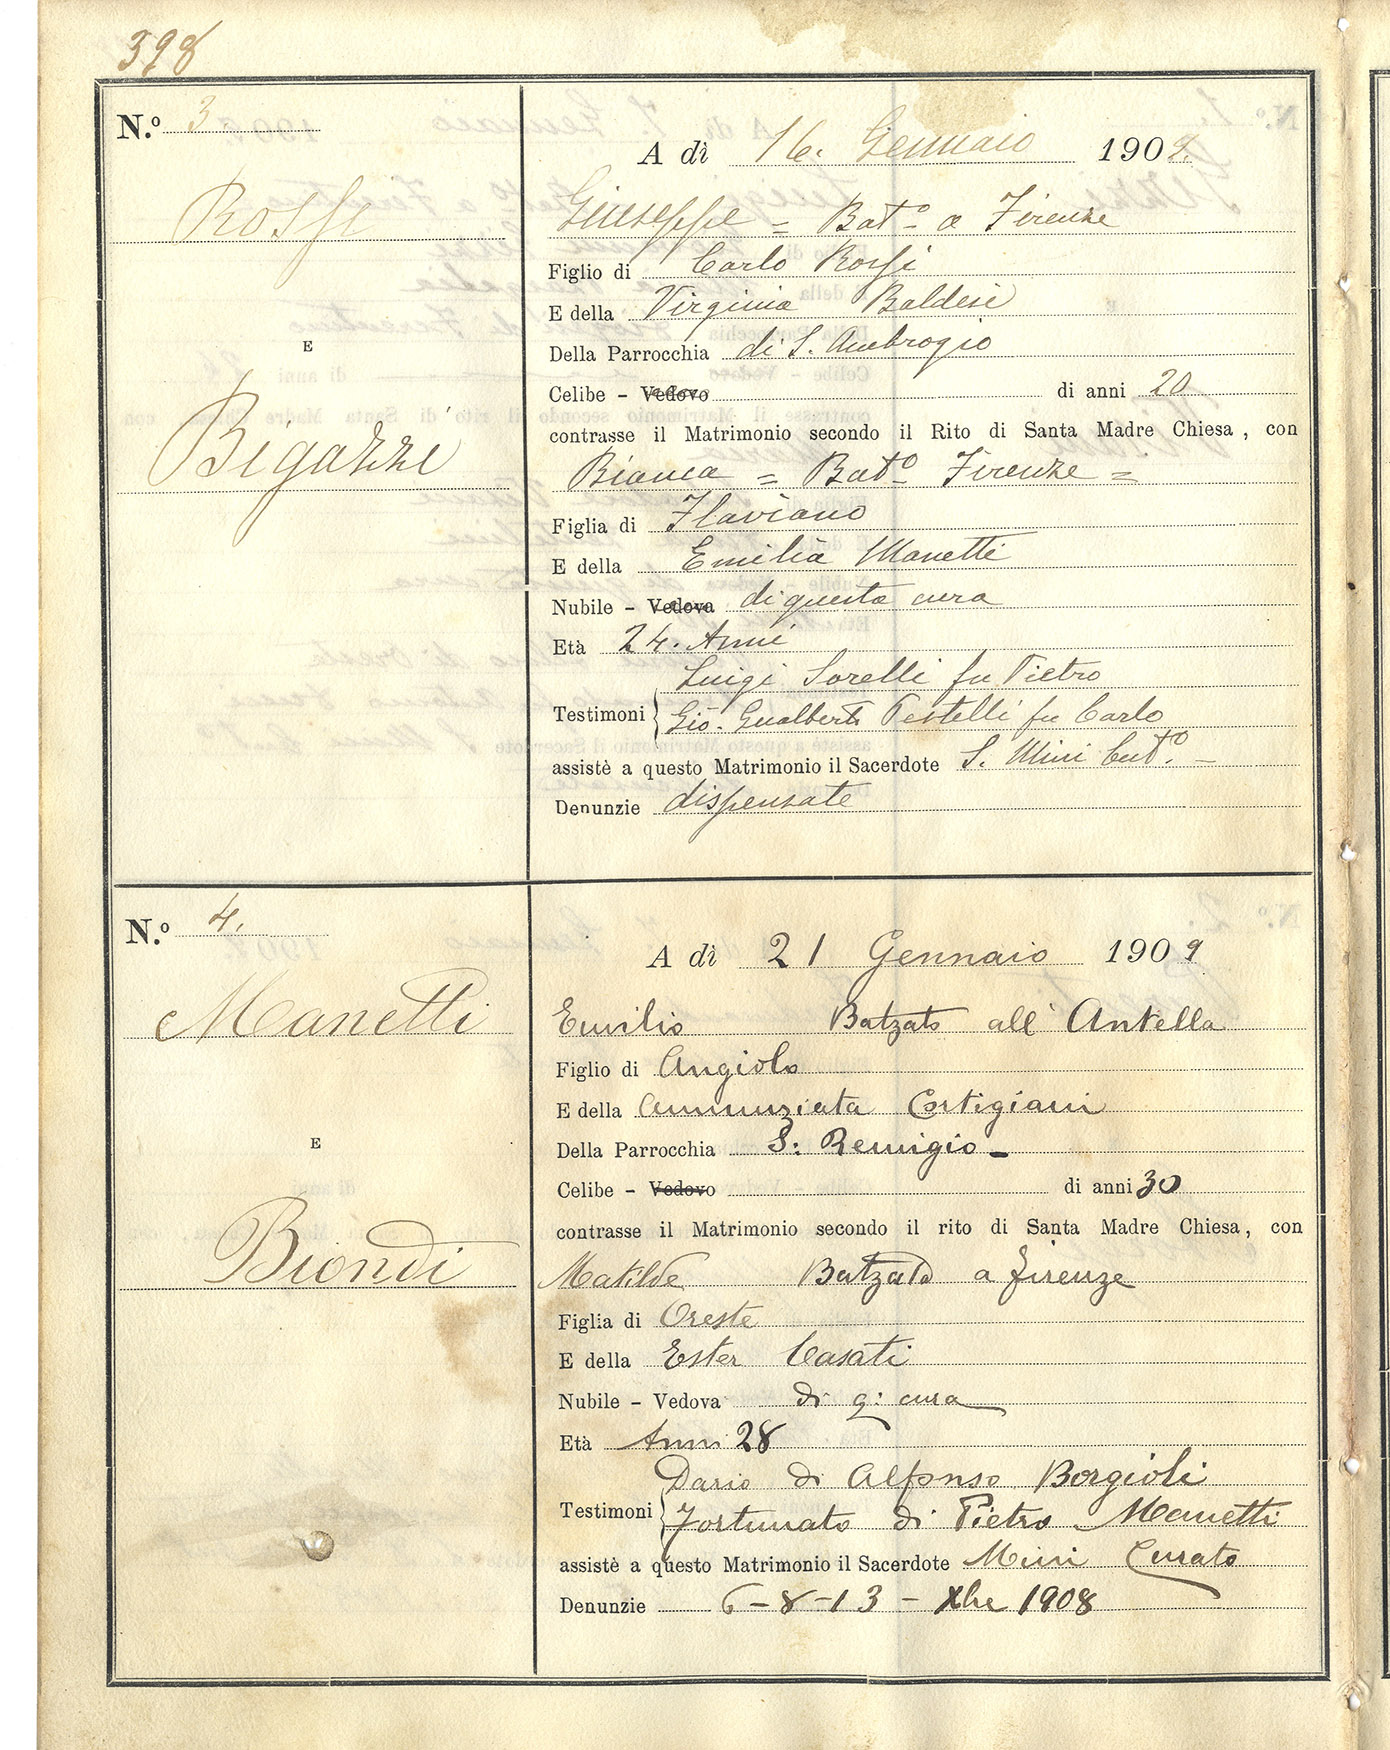 398
N.º 3
A dì 16. Gennaio 1909.
Rossi
Giuseppe = Batº a Firenze
Figlio di Carlo Rossi
E della Virginia Baldesi
E
Della Parrocchia di S. Ambrogio
Celibe - Vedovo di anni 20
contrasse il Matrimonio secondo il Rito di Santa Madre Chiesa, con
Bigazzi
Bianca = Batº Firenze =
Figlia di Flaviano
E della Emilia Manetti
Nubile - Vedova di questa cura
Età 24. Anni
Luigi Sorelli fu Pietro
Testimoni Gio. Gualberto Testelli fu Carlo
assistè a questo Matrimonio il Sacerdote S. Mini Curtº. -
Denunzie dispensate
N.º 4.
A dì 21 Gennaio 1909
Manetti
Emilio Batzato all' Antella
Figlio di Angiolo
E della Annunziata Cortigiani
E
Della Parrocchia S: Remigio -
Celibe - Vedovo di anni 30
contrasse il Matrimonio secondo il rito di Santa Madre Chiesa, con
Biondi
Matilde Batzata a Firenze
Figlia di Oreste
E della Ester Casati
Nubile - Vedova di q: cura
Età Anni 28
Dario di Alfonso Borgioli
Testimoni Fortunato di Pietro Manetti
assistè a questo Matrimonio il Sacerdote Mini Curato
Denunzie 6 - 8 - 13 - Xbre 1908